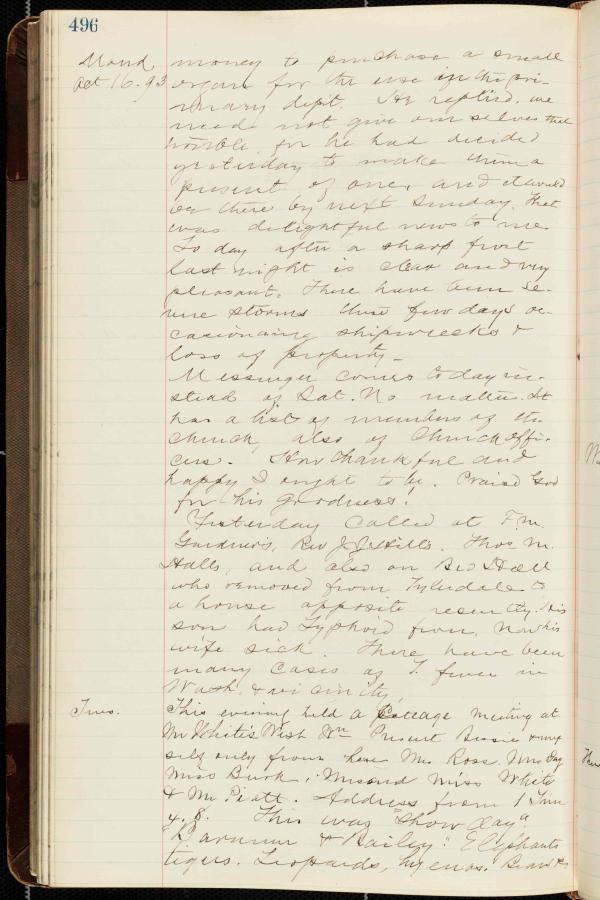 496
Mond money to purchase a small
Oct 16. 93 organ for the use in the pri-
mary dept. He replied, we
need not give ourselves that
trouble for he had decided
yesterday to make them a
present of one, and it would
be there by next Sunday. That
was delightful news to me.
To day after a sharp frost
last night is clear and very
pleasant. There have been se-
vere storms these few days oc-
casioning shipwrecks &
loss of property.
Messenger comes to day in-
stead of Sat. No matter. It
has a list of members of the
Church, also of Church offi-
cers. How thankful and
happy I ought to be. Praise God
for his goodness!
Yesterday called at F. M.
Gardner's, Rev J. J. Hills. Thos M.
Halls, and also on Geo Hall
who removed from Tyludale to
a house opposite recently. His
son had Typhoid fever. Now his
wife sick. There have been
many cases of T. fever in
Wash. & vicinity.
Tues. This evening held a Cottage Meeting at
Mr White's Wish Hn Present Bessie & my
self only from here Mrs Ross. Mrs Day
Miss Burk. Mrs and Miss White
& Mr Piatt. Address from 1 Tim
4. 8. This was "Show day"
"Barnum & Bailey." Elephants
tigers. Leopards, hyenas. Bears &